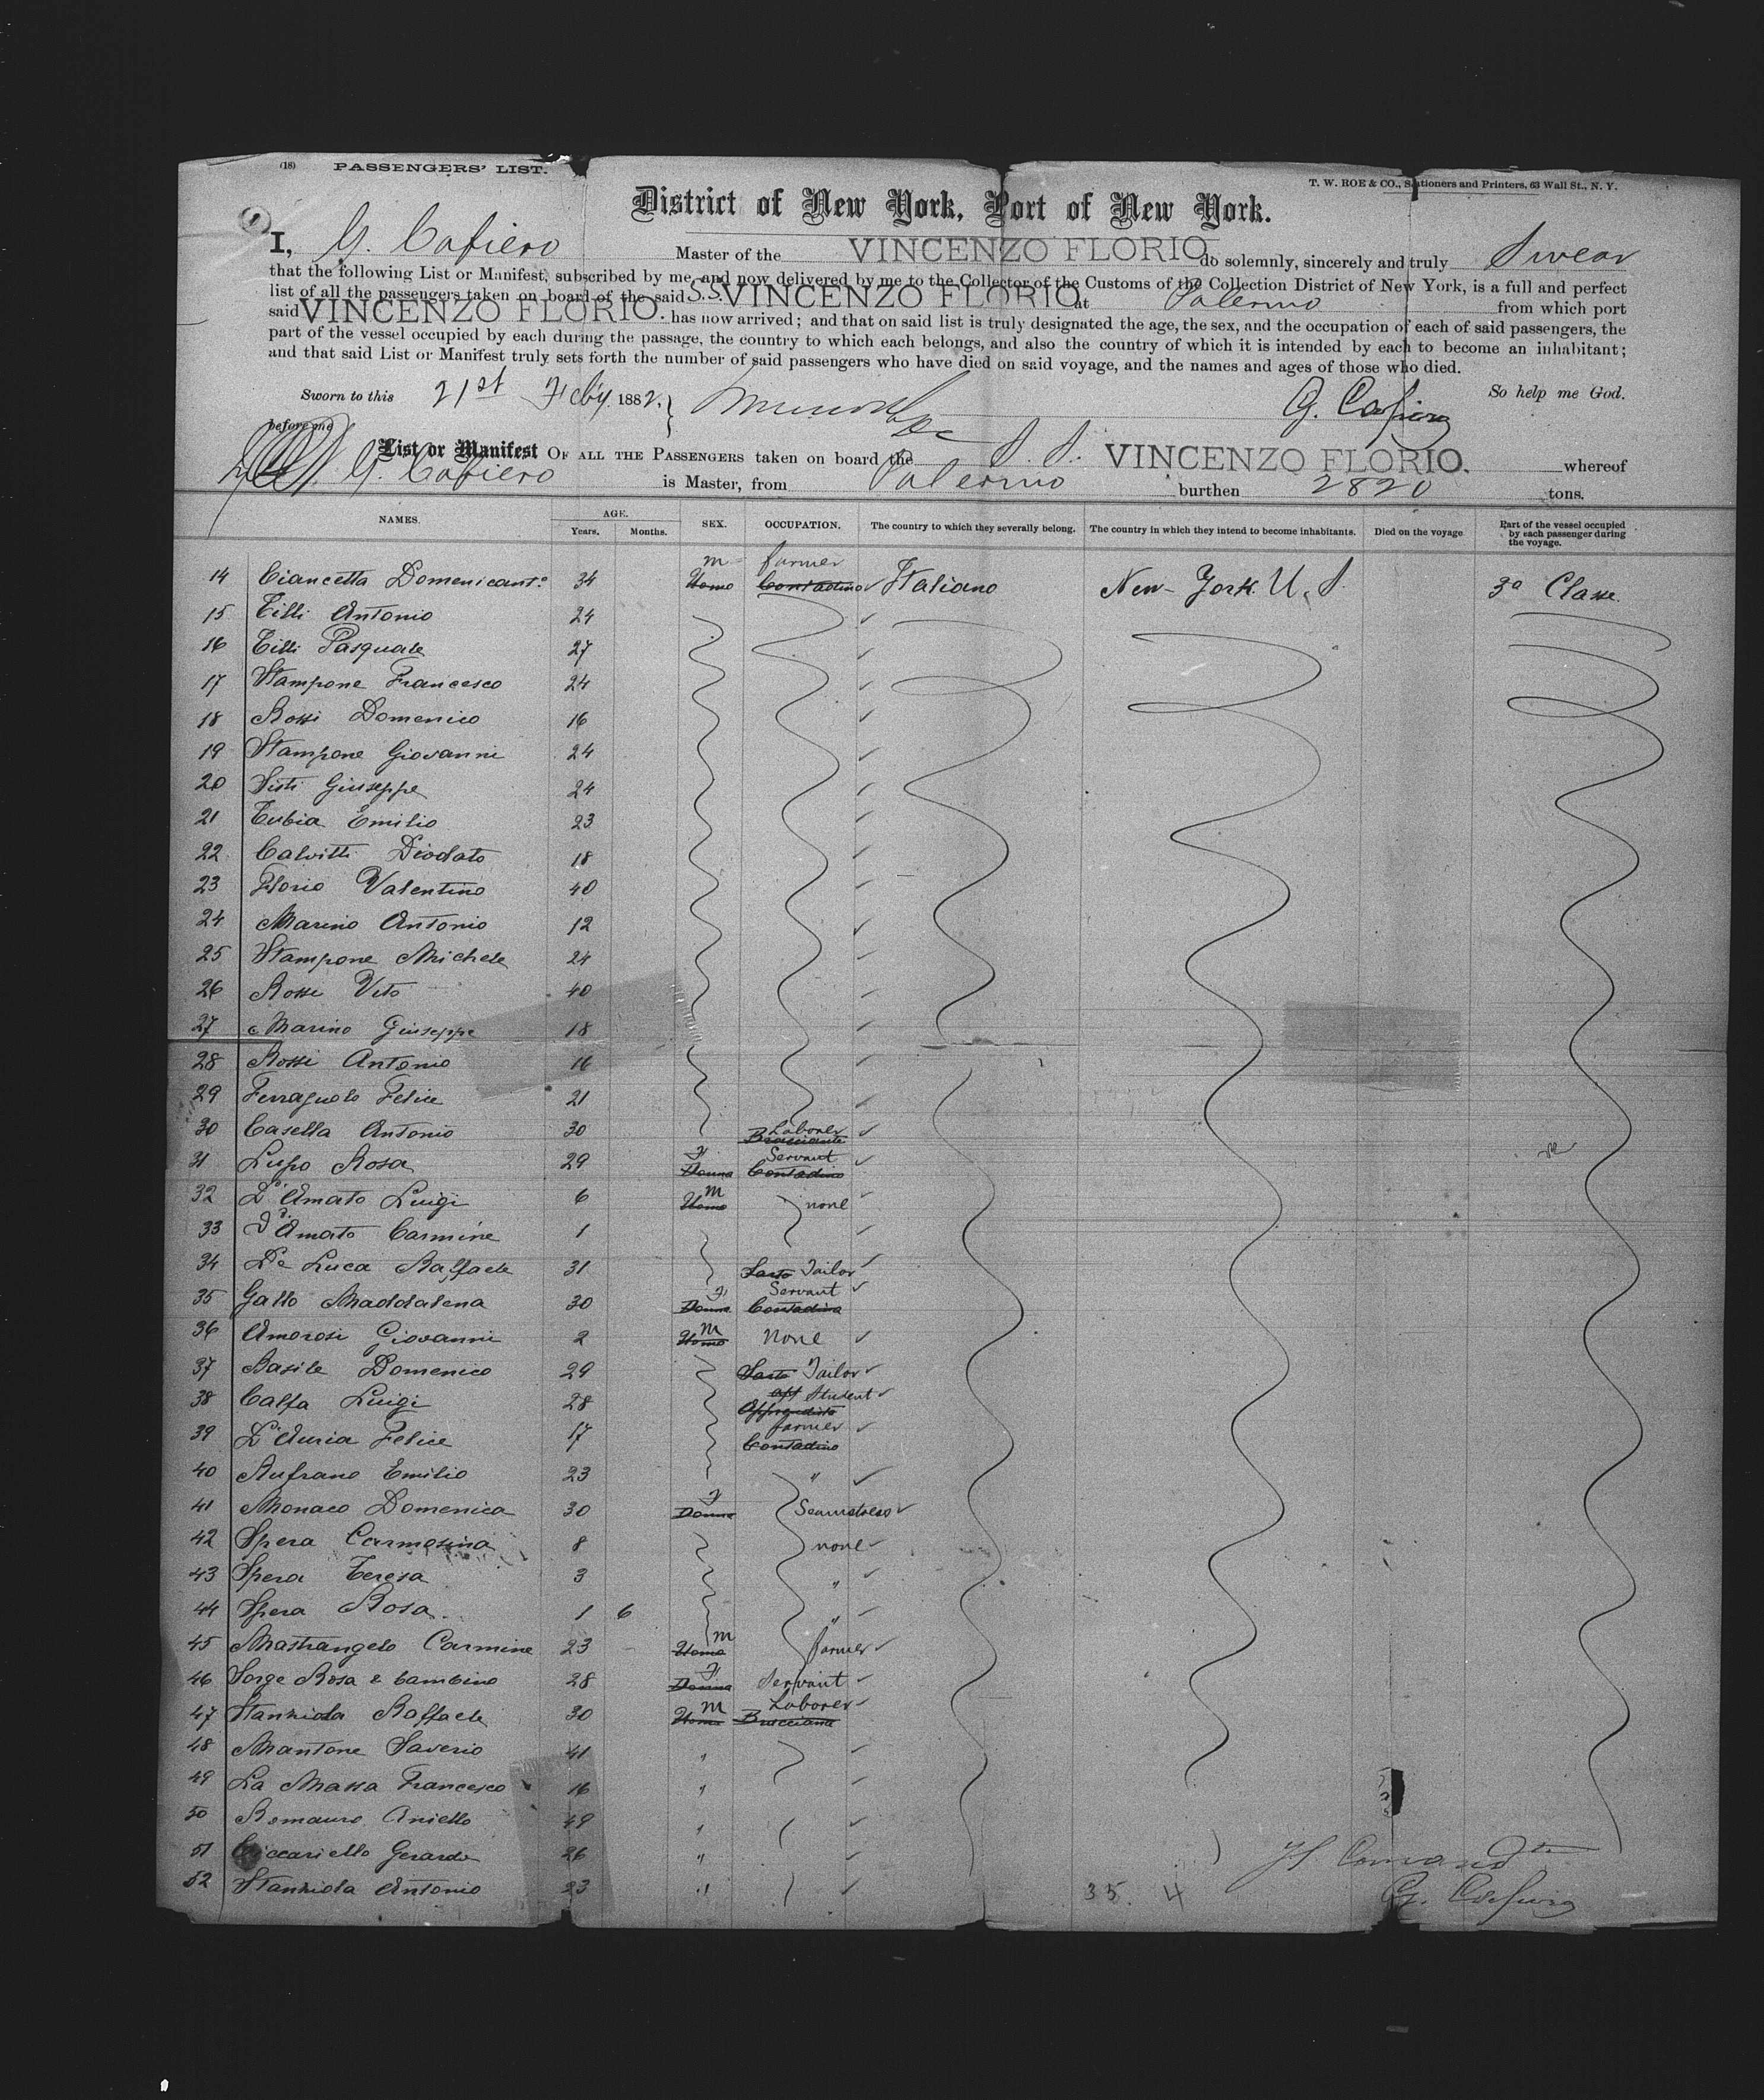 (18) PASSENGERS' LIST.
T. W. ROE & CO., Stationers and Printers, 63 Wall St., N. Y.
District of New York, Port of New York.
1
I, G. Cafiero Master of the VINCENZO FLORIO do solemnly, sincerely and truly Swear
that the following List or Manifest, subscribed by me, and now delivered by me to the Collector of the Customs of the Collection District of New York, is a full and perfect
list of all the passengers taken on board of the said S.S. VINCENZO FLORIO at Palermo from which port
said VINCENZO FLORIO. has now arrived; and that on said list is truly designated the age, the sex, and the occupation of each of said passengers, the
part of the vessel occupied by each during the passage, the country to which each belongs, and also the country of which it is intended by each to become an inhabitant;
and that said List or Manifest truly sets forth the number of said passengers who have died on said voyage, and the names and ages of those who died.
Sworn to this 21st Feby. 1882. G. Cafiero So help me God.
before me
List or Manifest OF ALL THE PASSENGERS taken on board the S. S. VINCENZO FLORIO. whereof
G. Cafiero is Master, from Palermo burthen 2820 tons.
NAMES. AGE. Years. Months. SEX. OCCUPATION. The country to which they severally belong. The country in which they intend to become inhabitants. Died on the voyage Part of the vessel occupied by each passenger during the voyage.
14 Ciancetta Domenicant.o 34 Uomo m Contadino farmer Italiano New-York. U. S. 3a Classe.
15 Tilli Antonio 24
16 Tilli Pasquale 27
17 Stampone Francesco 24
18 Rossi Domenico 16
19 Stampone Giovanni 24
20 Sisti Giuseppe 24
21 Tubia Emilio 23
22 Calvitti Diodato 18
23 Florio Valentino 40
24 Marino Antonio 12
25 Stampone Michele 24
26 Rossi Vito 40
27 Marino Giuseppe 18
28 Rossi Antonio 16
29 Ferragnolo Felice 21
30 Casella Antonio 30 Bracciante Laborer
31 Lupo Rosa 29 Donna F Contadina Servant
32 D'Amato Luigi 6 Uomo m none
33 D'Amato Carmine 1
34 De Luca Raffaele 31 Sarto Tailor
35 Gallo Maddalena 30 Donna F Contadina Servant
36 Amorosi Giovanni 2 Uomo m None
37 Basile Domenico 29 Sarto Tailor
38 Calfa Luigi 28 Student
39 D'Auria Felice 17 Contadino farmer
40 Rufrano Emilio 23 "
41 Monaco Domenica 30 Donna F Seamstress
42 Spera Carmosina 8 none
43 Spera Teresa 3 "
44 Spera Rosa. 1 6 "
45 Mastrangelo Carmine 23 Uomo m farmer
46 Sorge Rosa e bambino 28 Donna F Servant
47 Stanziola Raffaele 30 Uomo m Bracciante Laborer
48 Mantone Saverio 41 "
49 La Massa Francesco 16 "
50 Romauro Aniello 49 "
51 Ciccariello Gerardo 26 "
52 Stanziola Antonio 23 "
35. 4
Il Comandte
G. Cafiero